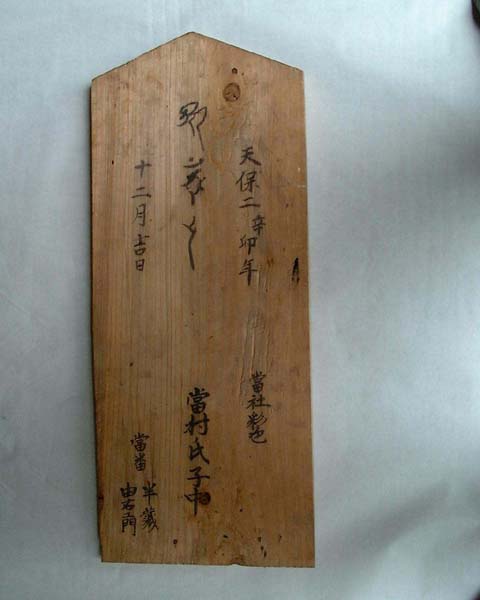 天保二辛卯年
當社彩色
當村氏子中
十二月吉日
當番 半蔵
由右エ門